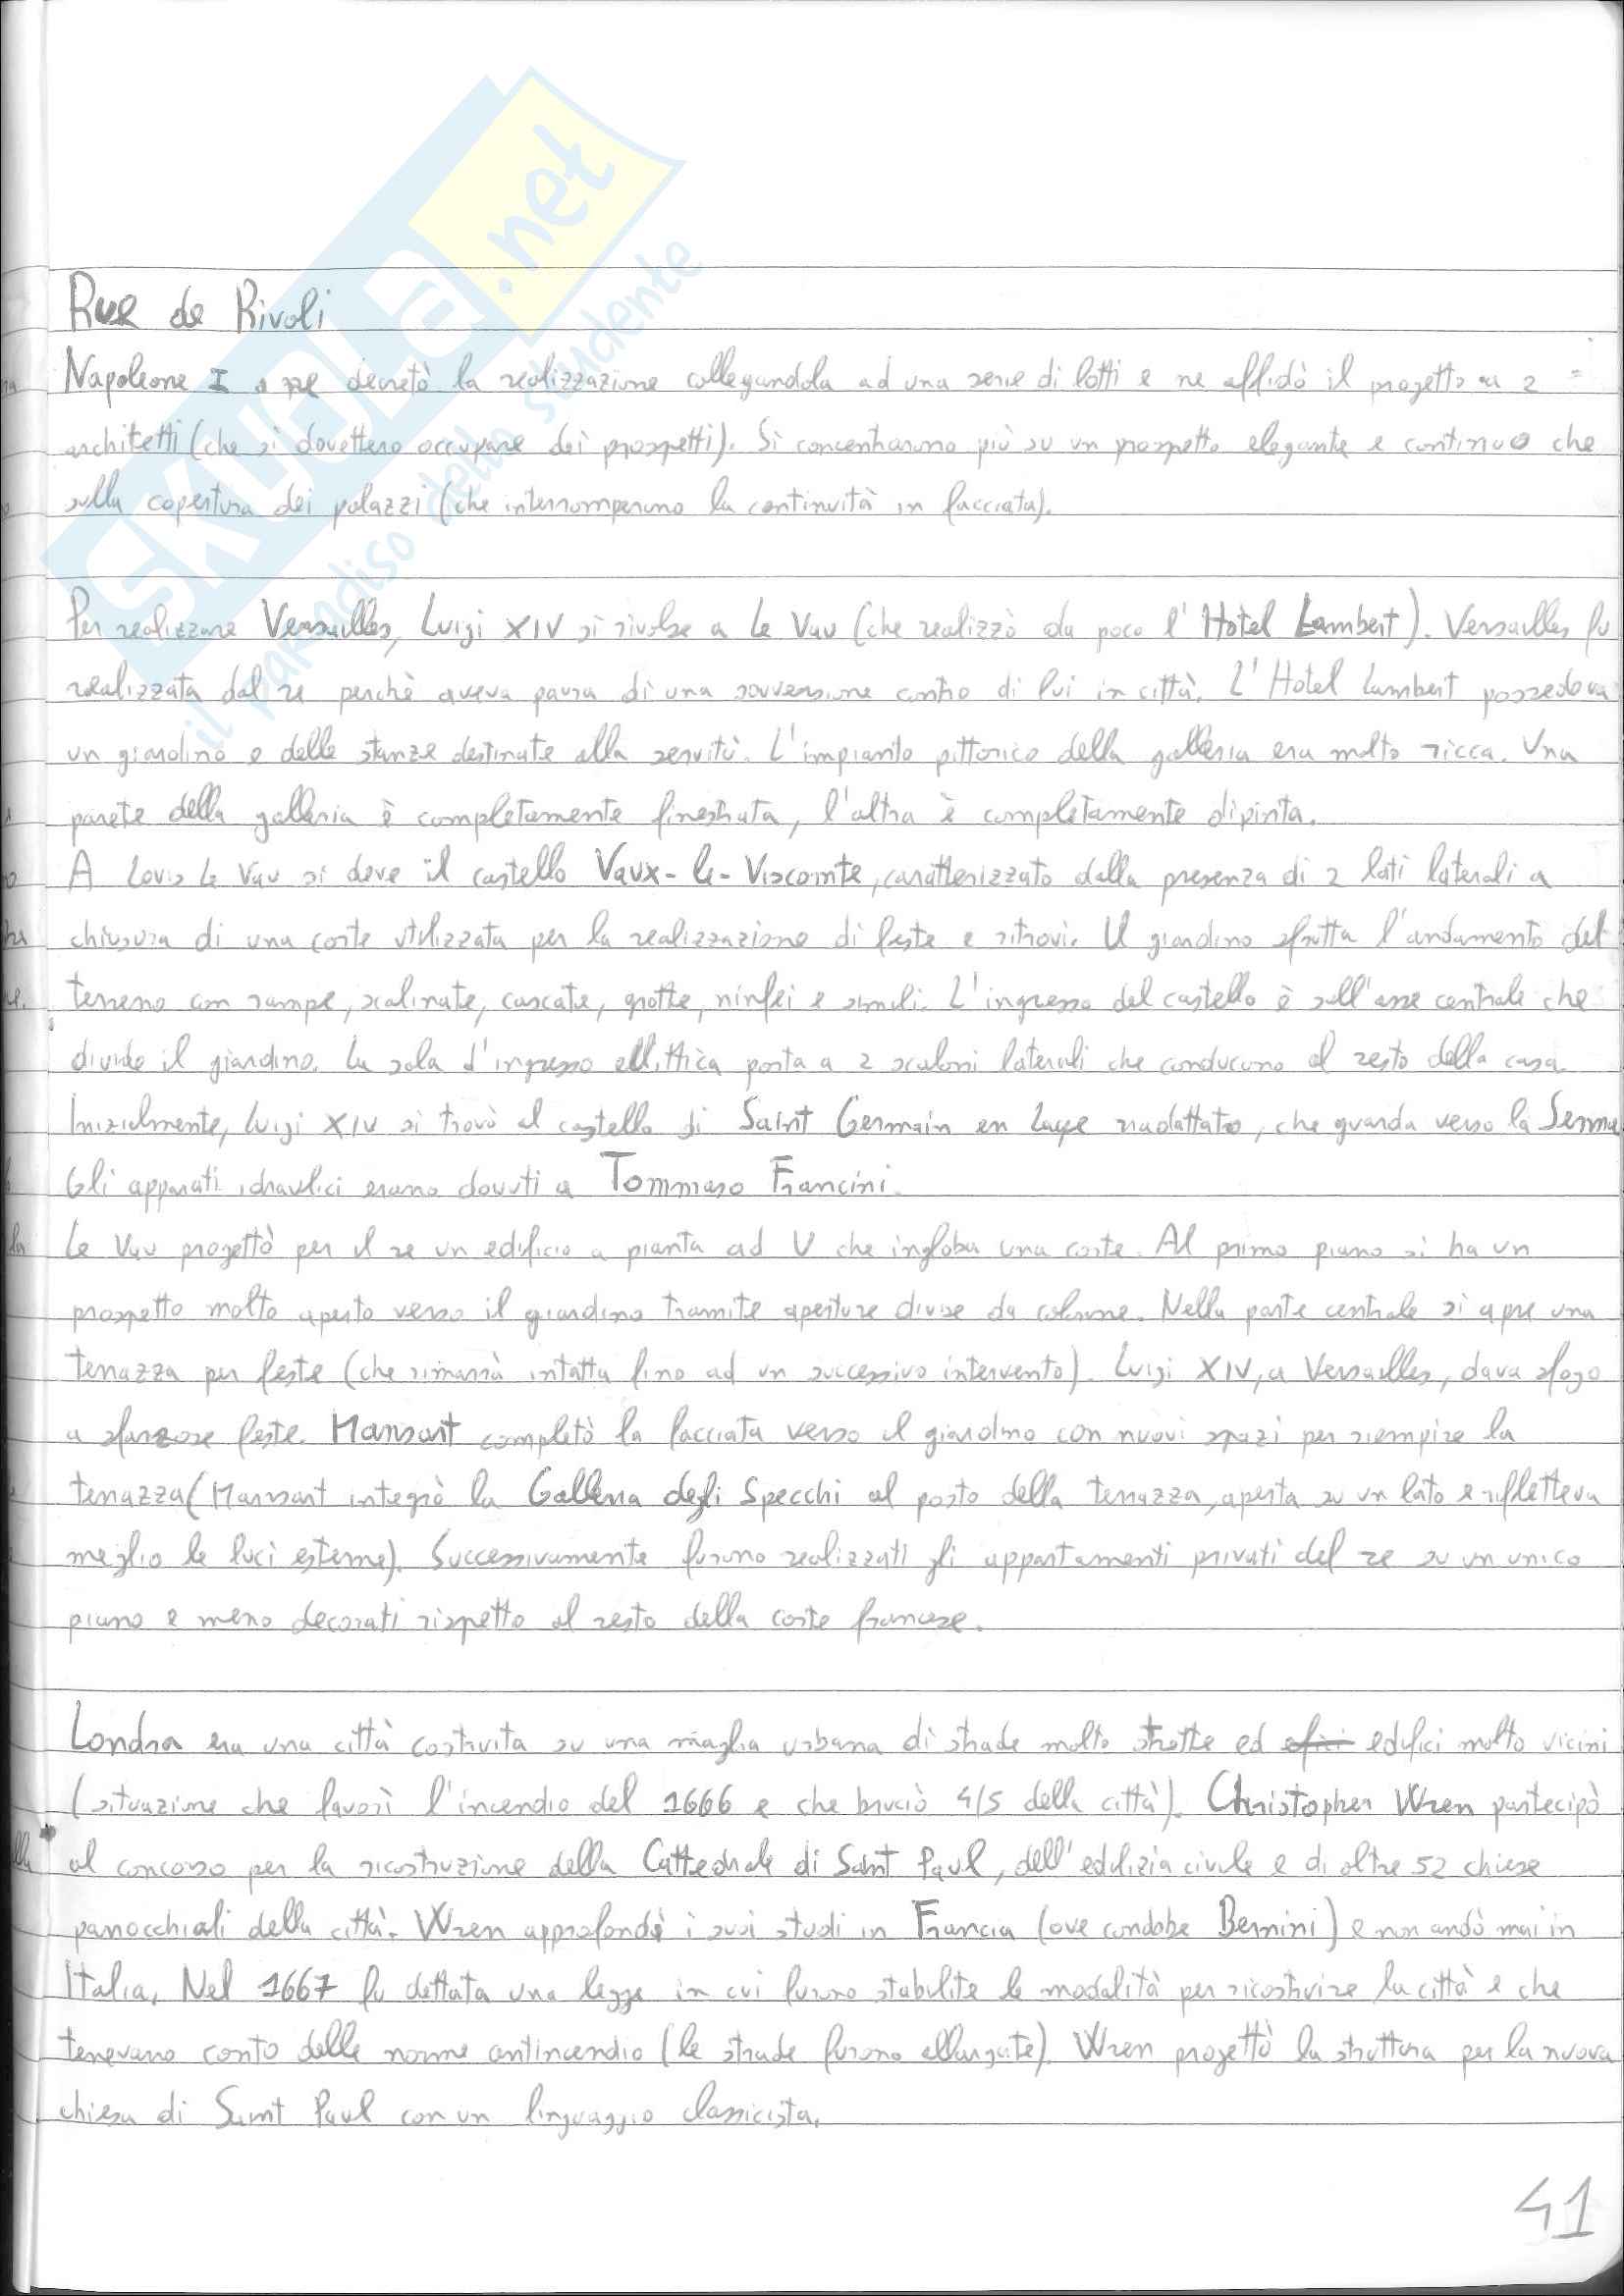 SKUOLA.net
il paradiso dello studente
Rue de Rivoli
Napoleone I ne decretò la realizzazione collegandola ad una serie di lotti e ne affidò il progetto a 2
architetti (che si dovettero occupare dei prospetti). Si concentrarono più su un prospetto elegante e continuo che
sulla copertura dei palazzi (che interromperono la continuità in facciata).
Per realizzare Versailles, Luigi XIV si rivolse a Le Vau (che realizzò da poco l'Hotel Lambert). Versailles fu
realizzata dal re perchè aveva paura di una sovversione contro di lui in città. L'Hotel Lambert possedeva
un giardino e delle stanze destinate alla servitù. L'impianto pittorico della galleria era molto ricca. Una
parete della galleria è completamente finestrata, l'altra è completamente dipinta.
A Louis Le Vau si deve il castello Vaux-le-Viscomte, caratterizzato dalla presenza di 2 lati laterali a
chiusura di una corte utilizzata per la realizzazione di feste e ritrovi. Il giardino sfrutta l'andamento del
terreno con rampe, scalinate, cascate, grotte, ninfei e simili. L'ingresso del castello è sull'asse centrale che
divide il giardino. La sala d'ingresso ellittica porta a 2 scaloni laterali che conducono al resto della casa.
Inizialmente, Luigi XIV si trovò al castello di Saint Germain en Laye riadattato, che guarda verso la Senna
Gli apparati idraulici erano dovuti a Tommaso Francini.
Le Vau progettò per il re un edificio a pianta ad U che ingloba una corte. Al primo piano si ha un
prospetto molto aperto verso il giardino tramite aperture divise da colonne. Nella parte centrale si apre una
terrazza per feste (che rimarrà intatta fino ad un successivo intervento). Luigi XIV, a Versailles, dava sfogo
a sfarzose feste. Mansart completò la facciata verso il giardino con nuovi spazi per riempire la
terrazza (Mansart integrò la Galleria degli Specchi al posto della terrazza, aperta su un lato e rifletteva
meglio le luci esterne). Successivamente furono realizzati gli appartamenti privati del re su un unico
piano e meno decorati rispetto al resto della corte francese.
Londra era una città costruita su una maglia urbana di strade molto strette ed edifici molto vicini
(situazione che favorì l'incendio del 1666 e che bruciò 4/5 della città). Christopher Wren partecipò
al concorso per la ricostruzione della Cattedrale di Saint Paul, dell'edilizia civile e di oltre 52 chiese
parrocchiali della città. Wren approfondì i suoi studi in Francia (ove conobbe Bernini) e non andò mai in
Italia. Nel 1667 fu dettata una legge in cui furono stabilite le modalità per ricostruire la città e che
tenevano conto delle norme antincendio (le strade furono allargate). Wren progettò la struttura per la nuova
chiesa di Saint Paul con un linguaggio classicista.
41